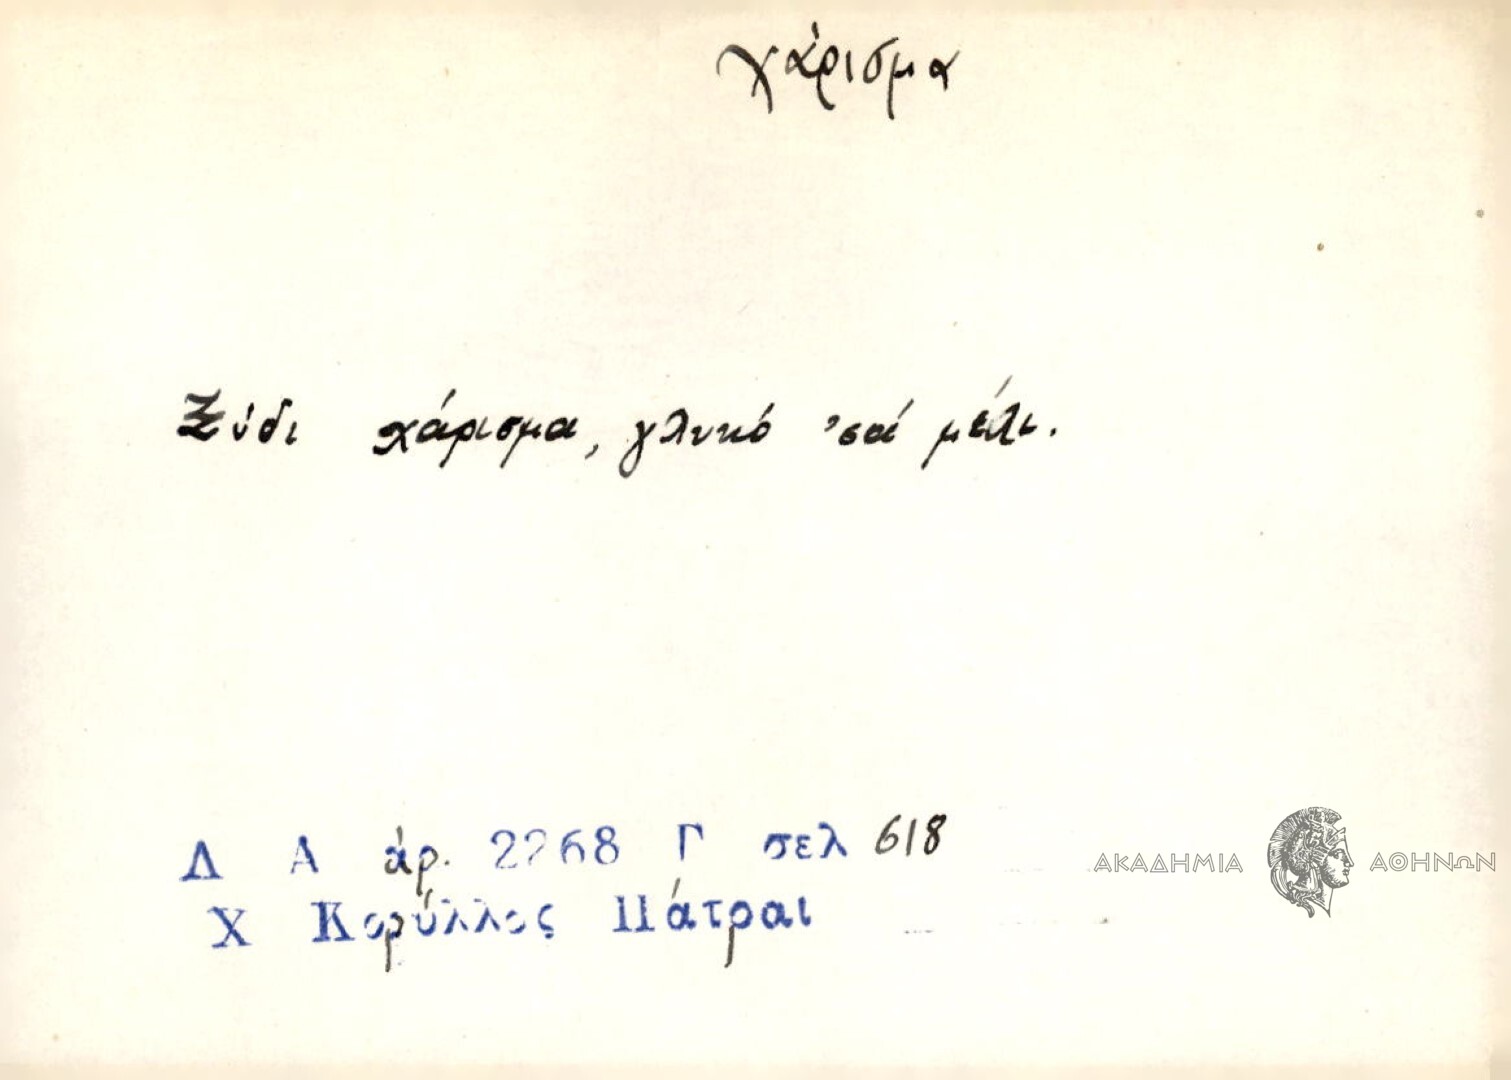 χάρισμα
Ξύδι χάρισμα, γλυκό 'σά μέλι.
Λ Α ἀρ. 2268 Γ σελ 618
Χ Κορύλλος Πάτραι
ΑΚΑΔΗΜΙΑ ΑΘΗΝΩΝ